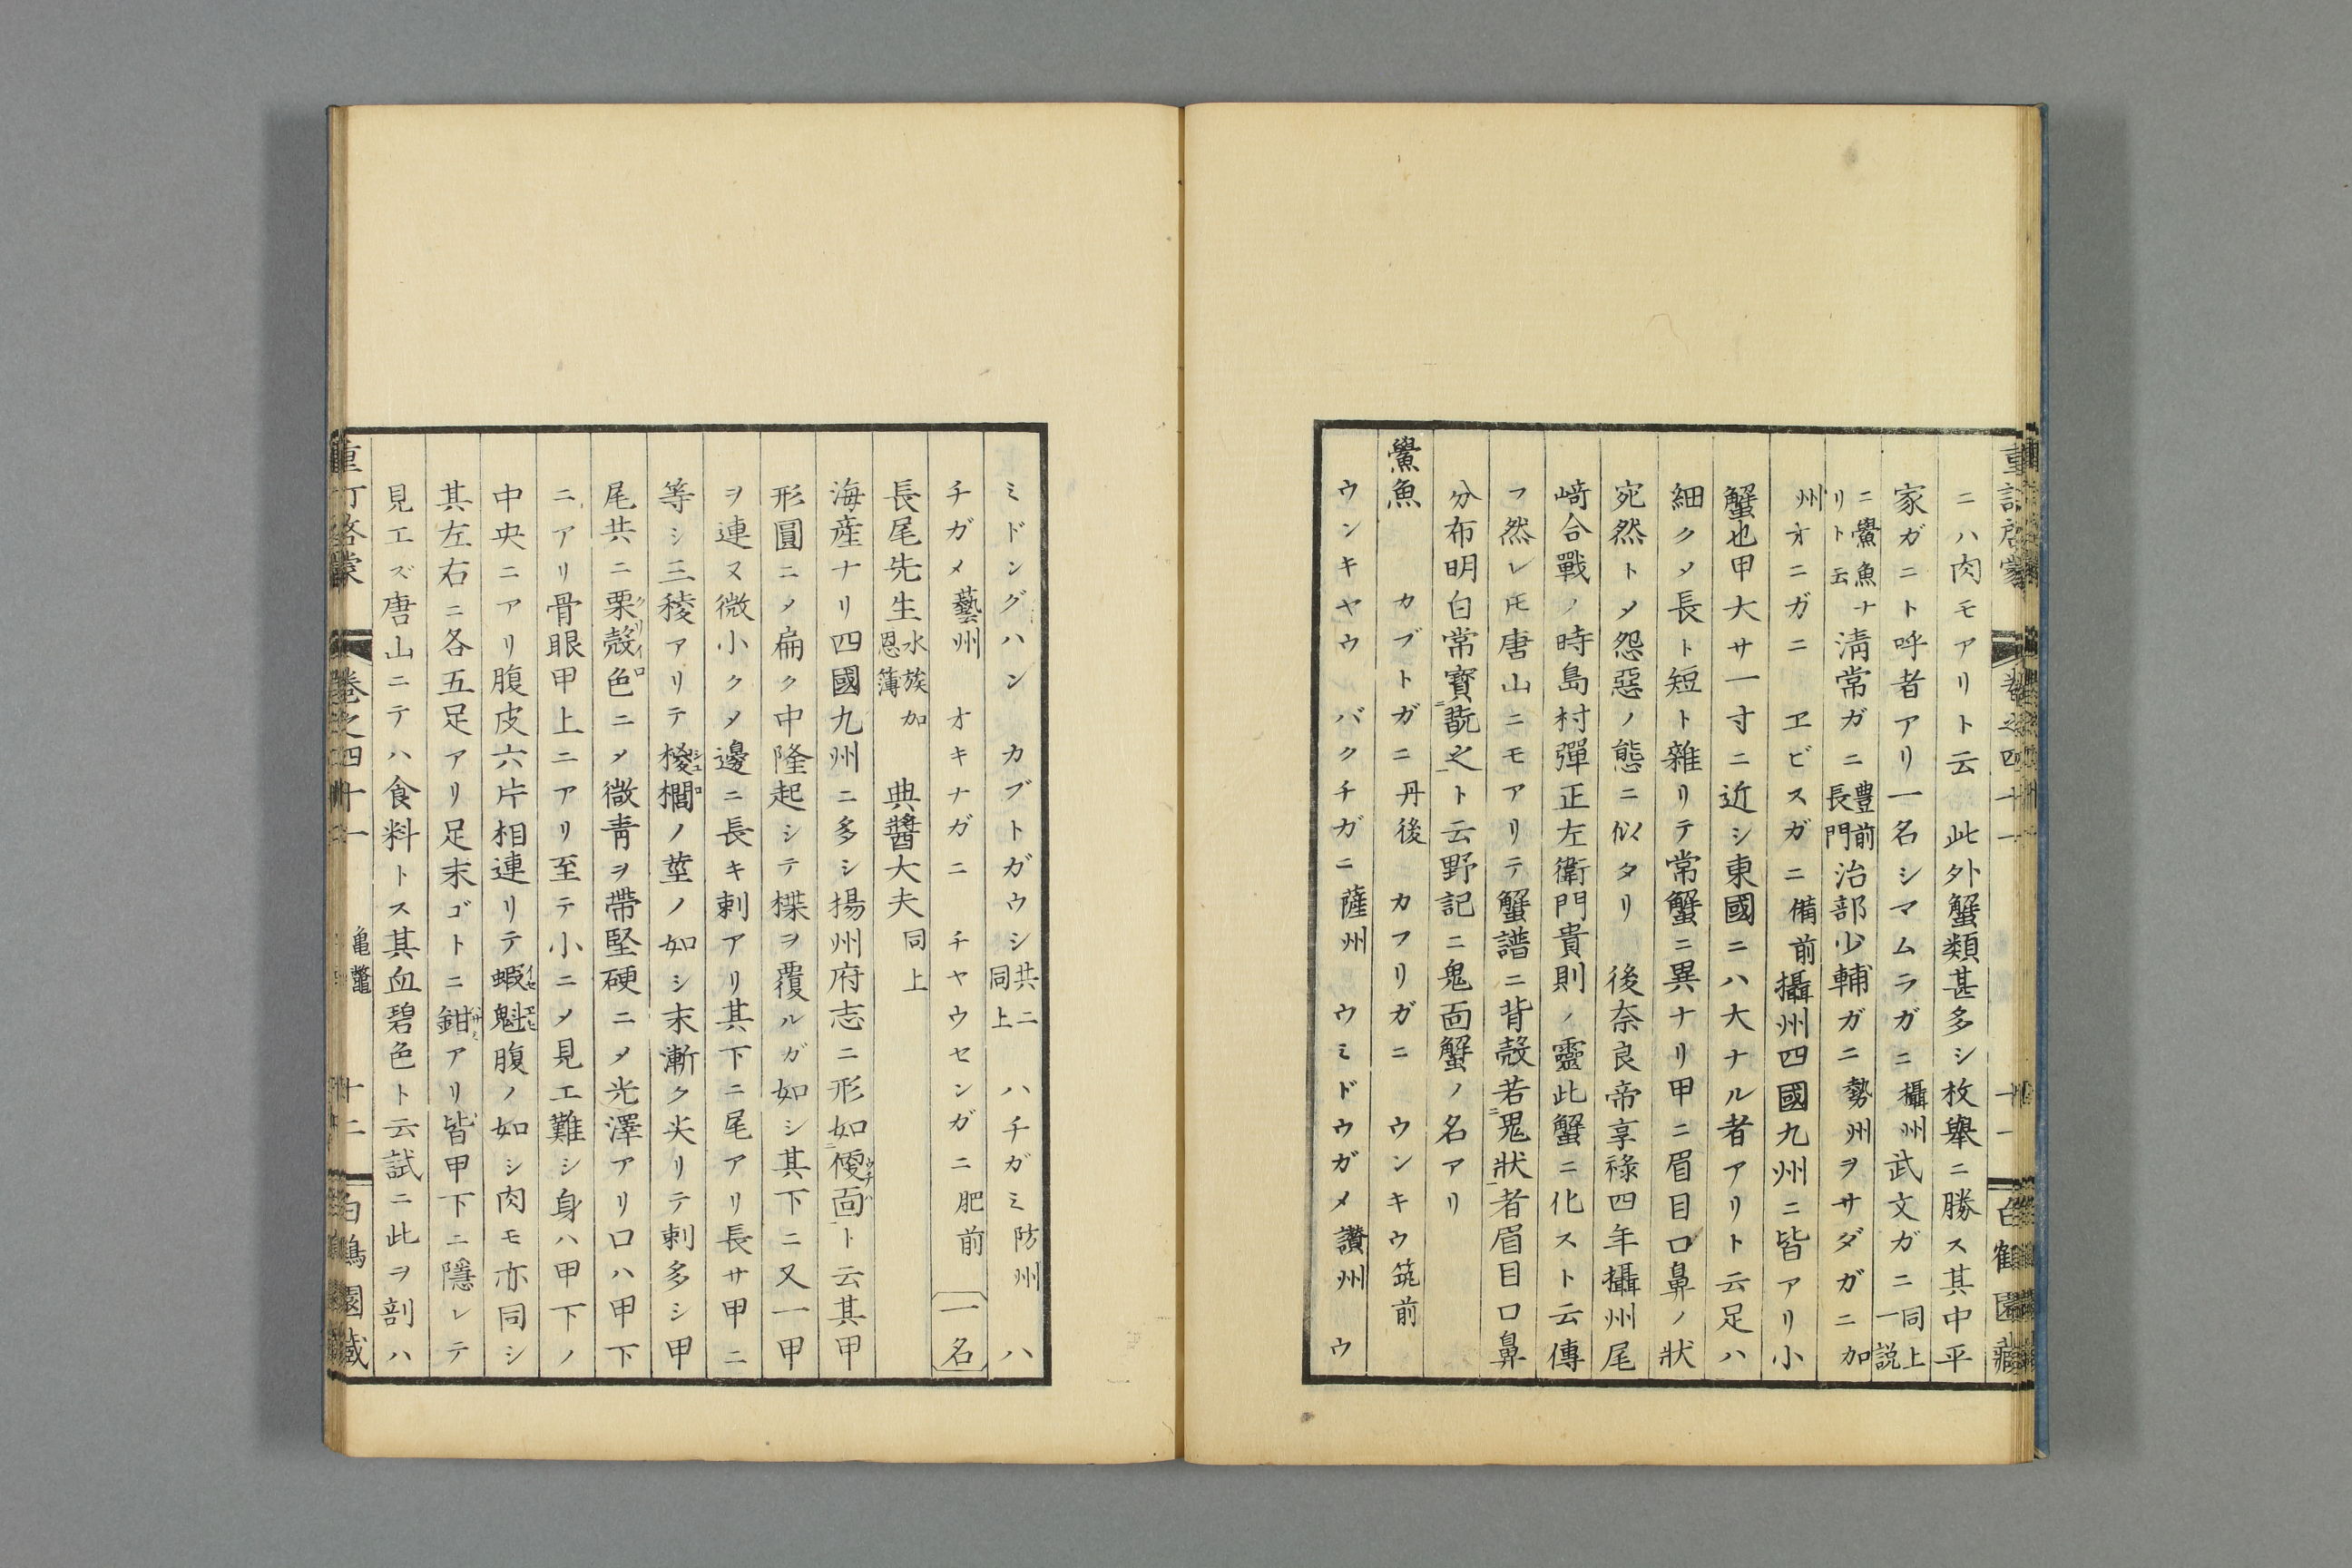 ニハ肉モアリト云 此外蟹類甚多シ枚舉ニ勝ス其中平
家ガニト呼者アリ一名シマムラガニ攝州武文ガニ同上一説
ニ鱟魚ナリト云清常ガニ豊前長門治部少輔ガニ勢州ヲサダガニ加
州オニガニ ヱビスガニ備前攝州四國九州ニ皆アリ小
蟹也甲大サ一寸ニ近シ東國ニハ大ナル者アリト云足ハ
細クメ長ト短ト雜リテ常蟹ニ異ナリ甲ニ眉目口鼻ノ狀
宛然トメ怨惡ノ態ニ似タリ 後奈良帝享祿四年攝州尾
﨑合戰ノ時島村彈正左衛門貴則ノ靈此蟹ニ化スト云傳
フ然レ𪜈唐山ニモアリテ蟹譜ニ背殼若鬼狀者眉目口鼻
分布明白常寳翫之ト云野記ニ鬼面蟹ノ名アリ
鱟魚 カブトガニ丹後 カフリガニ ウンキウ筑前
ウンキヤウ バクチガニ薩州 ウミドウガメ讚州 ウ
ミドングハン カブトガウシ共ニ同上 ハチガミ防州 ハ
チガメ藝州 オキナガニ チヤウセンガニ肥前 一名
長尾先生水族加恩簿 典醬大夫同上
海産ナリ四國九州ニ多シ揚州府志ニ形如便面ト云其甲
形圓ニメ扁ク中隆起シテ楪ヲ覆ルガ如シ其下ニ又一甲
ヲ連ヌ微小クメ邊ニ長キ刺アリ其下ニ尾アリ長サ甲ニ
等シ三稜アリテ椶櫚ノ莖ノ如シ末漸ク尖リテ刺多シ甲
尾共ニ栗殼色ニメ微青ヲ帶堅硬ニメ光澤アリ口ハ甲下
ニアリ骨眼甲上ニアリ至テ小ニメ見エ難シ身ハ甲下ノ
中央ニアリ腹皮六片相連リテ蝦魁腹ノ如シ肉モ亦同シ
其左右ニ各五足アリ足末ゴトニ鉗アリ皆甲下ニ隱レテ
見エズ唐山ニテハ食料トス其血碧色ト云試ニ此ヲ剖ハ
重訂啓蒙 卷之四十一 亀鼈 十二